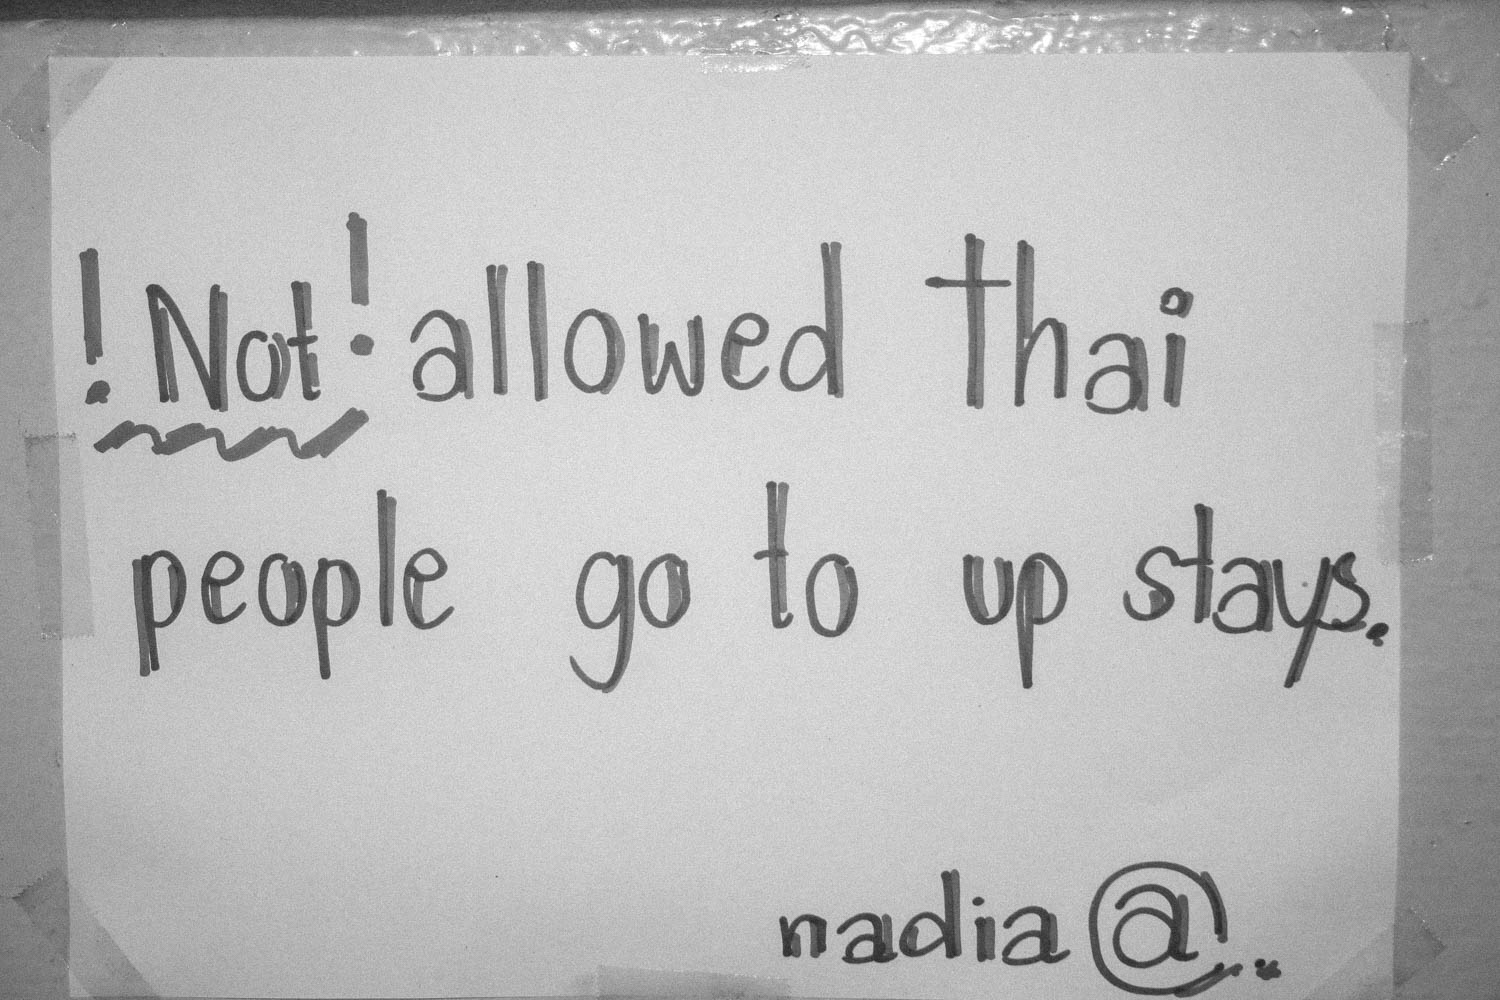 ! Not! allowed thai
people go to up stays.
nadia @..